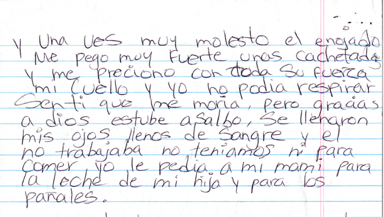 y una ves muy molesto el engado
Me pego muy fuerte unas cachetadas
y me preciono con toda su fuerza
mi cuello y yo no podia respirar
Senti que me moria, pero gracias
a dios estube asalbo, Se llenaron
mis ojos llenos de Sangre y el
no trabajaba no teniamos ni para
comer yo le pedia a mi mami para
la leche de mi hija y para los
pañales.